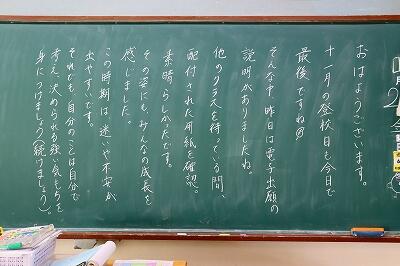 おはようございます。
十一月の登校日も今日で
最後ですね
そんな中、昨日は電子出願の
説明がありましたね。
他のクラスを待っている間、
配付された用紙を確認。
素晴らしかたです。
その姿にもみんなの成長を
感じました。
この時期は、迷いや不安が
出やすいです。
それでも、自分のことは自分で
考え、決められる強い気もちを
身につけましょう(続けましょう)。